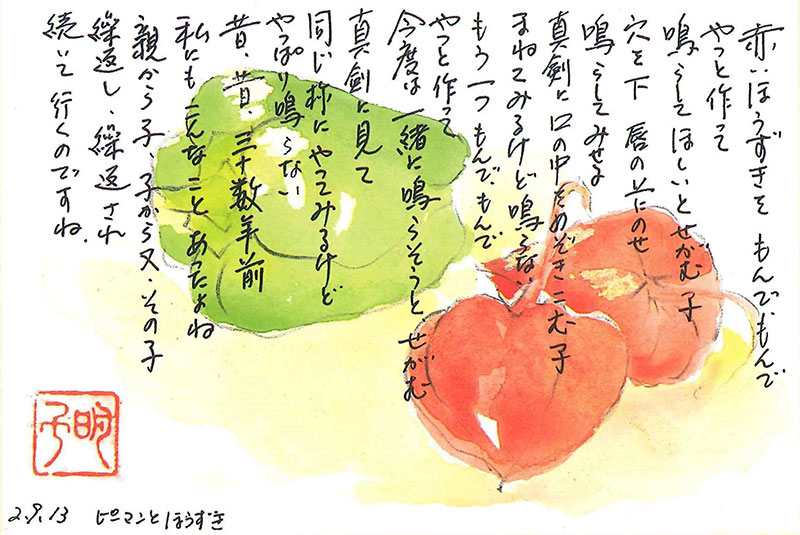 赤いほうずきを もんで、もんで
やっと作って
鳴らしてほしいとせがむ子
穴を下唇の上にのせ
鳴らしてみせる
真剣に口の中をのぞきこむ子
まねてみるけど鳴らない
もう一つもんで、もんで
やっと作って
今度は一緒に鳴らそうと せがむ
真剣に見て
同じ様にやってみるけど
やっぱり鳴らない
昔、昔 三十数年前
私にも こんなこと あったよね
親から子 子から又、その子
繰返し、繰返され
続いて行くのですね。
明子
2.9.13 ピーマンとほうずき